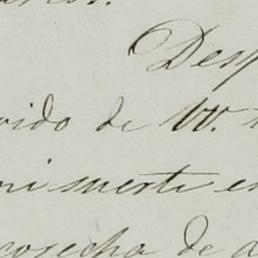 Desp
vido de VV.
mi suerte en
cosecha de a